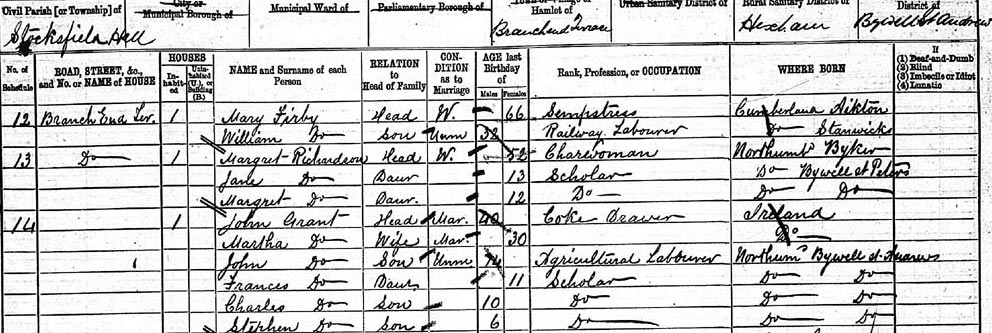 Civil Parish [or Township] of
City or
Municipal Borough of
Municipal Ward of
Parliamentary Borough of
Town or Village or
Hamlet of
Urban Sanitary District of
Rural Sanitary District of
District of
Stocksfield Hall
Branch end
Hexham
Bywell St Andrew
No. of Schedule
ROAD, STREET, &c., and No. or NAME of HOUSE
HOUSES
In-habit-ed
Unin-habited (U.), or Building (B.)
NAME and Surname of each Person
RELATION to Head of Family
CON-DITION as to Marriage
AGE last Birthday of
Males
Females
Rank, Profession, or OCCUPATION
WHERE BORN
If
(1) Deaf-and-Dumb
(2) Blind
(3) Imbecile or Idiot
(4) Lunatic
12 Branch End Ter. 1 Mary Firby Head W. 66 Sempstress Cumberland Aikton
William Do Son Unm 32 Railway Labourer Do Stanwicks
13 Do 1 Margret Richardson Head W. 52 Charwoman Northumb Byker
Jane Do Daur 13 Scholar Do Bywell St Peters
Margret Do Daur. 12 Do Do Do
14 1 John Grant Head Mar. 40 Coke Drawer Ireland
Martha Do Wife Mar. 30 Do
John Do Son Unm 14 Agricultural Labourer Northum Bywell St. Andrews
Frances Do Daur 11 Scholar Do Do
Charles Do Son 10 Do Do Do
Stephen Do Son 6 Do Do Do